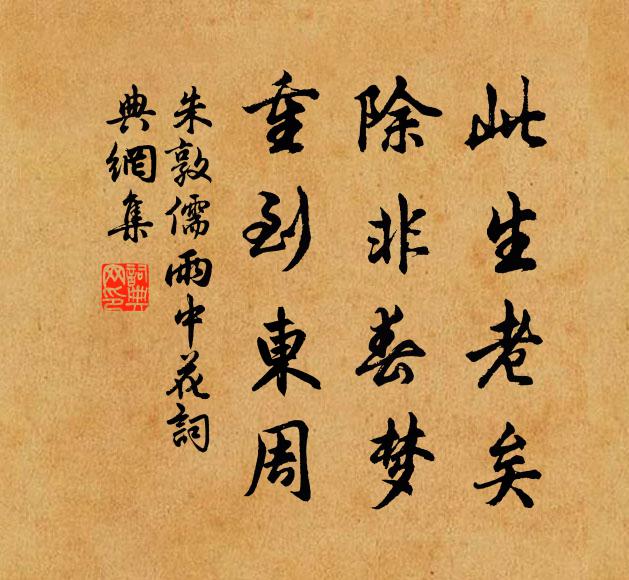 此生老矣
除非春梦
重到東周
朱敦儒雨中花詞
典網集
詞典網印